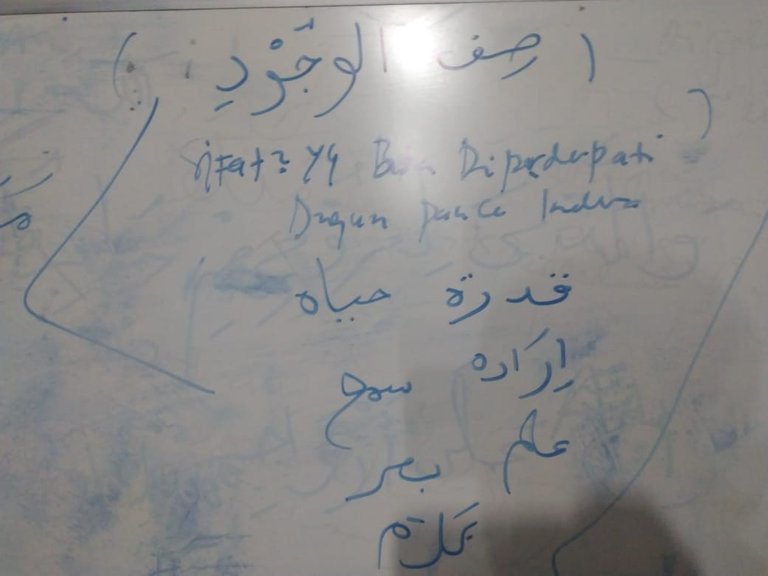 ( صف الوجود )
Sifat² Yg Bisa Diperdapati
Dngan Panca Indra
قدرة حياه
إرَاده سمع
علم بصر
كلَام